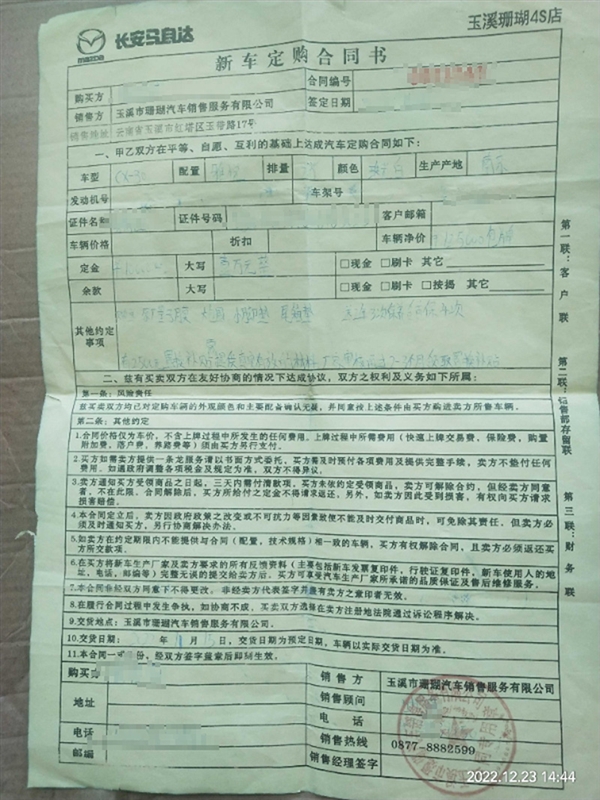 mazda 长安马自达
玉溪珊瑚4S店
新车定购合同书
购买方
合同编号
销售方 玉溪市珊瑚汽车销售服务有限公司
签定日期
销售地址 云南省玉溪市红塔区玉带路17号
一、甲乙双方在平等、自愿、互利的基础上达成汽车定购合同如下：
车型 CX-30 配置 排量 颜色 生产产地
发动机号 车架号
证件名称 证件号码 客户邮箱
车辆价格 折扣 车辆净价
定金 大写 壹万元整 □现金 □刷卡 其它
余款 大写 □现金 □刷卡 □按揭 其它
其他约定
事项
二、兹有买卖双方在友好协商的情况下达成协议，双方之权利及义务如下所属：
第一条：风险责任
兹买卖双方均已对定购车辆的外观颜色和主要配备确认无疑，并同意按上述条件由买方购进卖方所售车辆。
第二条：其他约定
1.合同价格仅为车价，不含上牌过程中所发生的任何费用。上牌过程中所需费用（快速上牌交易费、保险费，购置
附加费、落户费、养路费等）须由买方另行支付。
2.买方如需卖方提供一条龙服务请以书面方式委托，买方需及时预付各项费用及提供完整手续，卖方不垫付任何
费用。如遇政府调整各项税金及规定为准，双方不得异议。
3.卖方通知买方受领商品之日起，三天内需付清款项。买方未依约定受领商品，卖方可解除合约，但经卖方同意
者，不在此限。合同解除后，买方所给付之定金不得请求返还。另外，如卖方因此受到损害，有权向买方请求
损害赔偿。
4.合同定立后，卖方因政府政策之改变或不可抗力等因素致使不能及时交付商品时，可免除其责任，但卖方必
须及时通知买方，另行协商解决办法。
5.如卖方在约定期限内不能提供与合同（配置，技术规格）唯一致的车辆，买方有权解除合同，且卖方必须返还买
方所交款项。
6.在买方将新车生产厂家及卖方要求的所有反馈资料（主要包括新车发票复印件，行驶证复印件，新车使用人的地
址，电话，邮编等）完整无误的提交给卖方后，买方可享受汽车生产厂家所承诺的品质保证及售后维修服务。
7.本合同非经双方同意下不得更改，非经卖方代表签字并盖有卖方之章印者无效。
8.在履行合同过程中发生争执，如协商不成，买卖双方选择在卖方注册地法院通过诉讼程序解决。
9.交货地点：玉溪市珊瑚汽车销售服务有限公司。
10.交货日期： 11月 日，交货日期为预定日期，车辆以实际交货日期为准。
11.本合同一 份，经双方签字盖章后即刻生效。
购买方
地址
电话
邮编
销售方 玉溪市珊瑚汽车销售服务有限公司
销售顾问
电话
销售热线 0877-8882599
销售经理签字
第一联：客户联
第二联：销售部存留联
第三联：财务联
2022.12.23 14:44